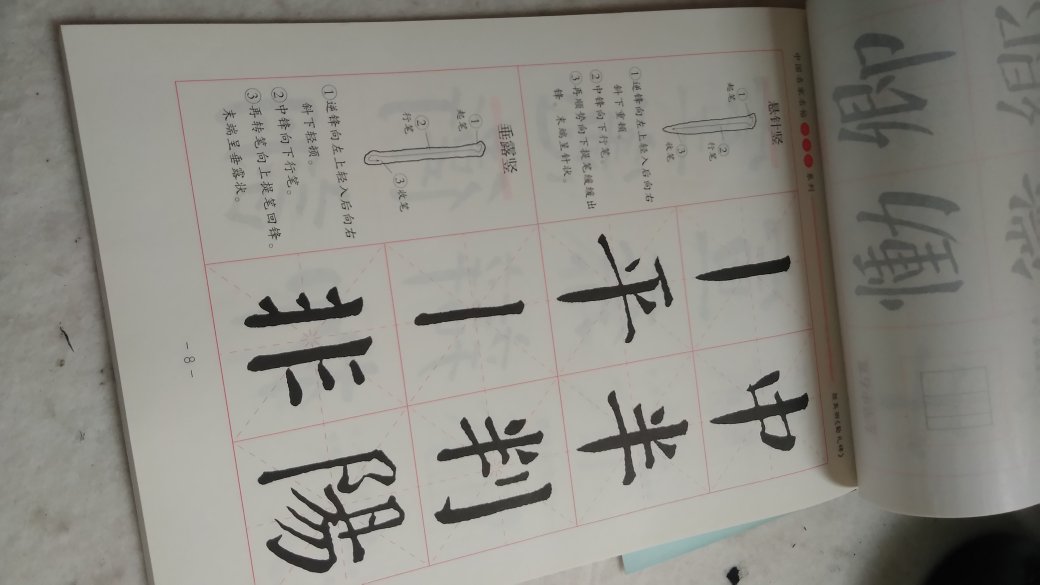 系列
颜真卿《勤礼碑》
悬针竖
①起笔
②行笔
③收笔
①逆锋向左上轻入后向右
斜下重顿。
②中锋向下行笔。
③再顺势向下提笔缓缓出
锋。末端呈针状。
丨 中
平 半
垂露竖
①起笔
②行笔
③收笔
①逆锋向左上轻入后向右
斜下轻顿。
②中锋向下行笔。
③再转笔向上提笔回锋。
末端呈垂露状。
丨 判
非 陽
- 8 -